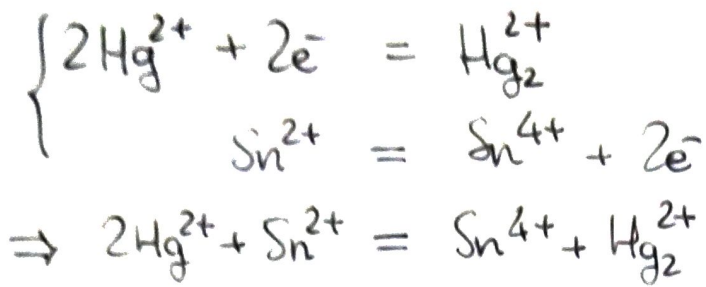 2Hg²⁺ + 2e⁻ = Hg₂²⁺
Sn²⁺ = Sn⁴⁺ + 2e⁻
⇒ 2Hg²⁺ + Sn²⁺ = Sn⁴⁺ + Hg₂²⁺